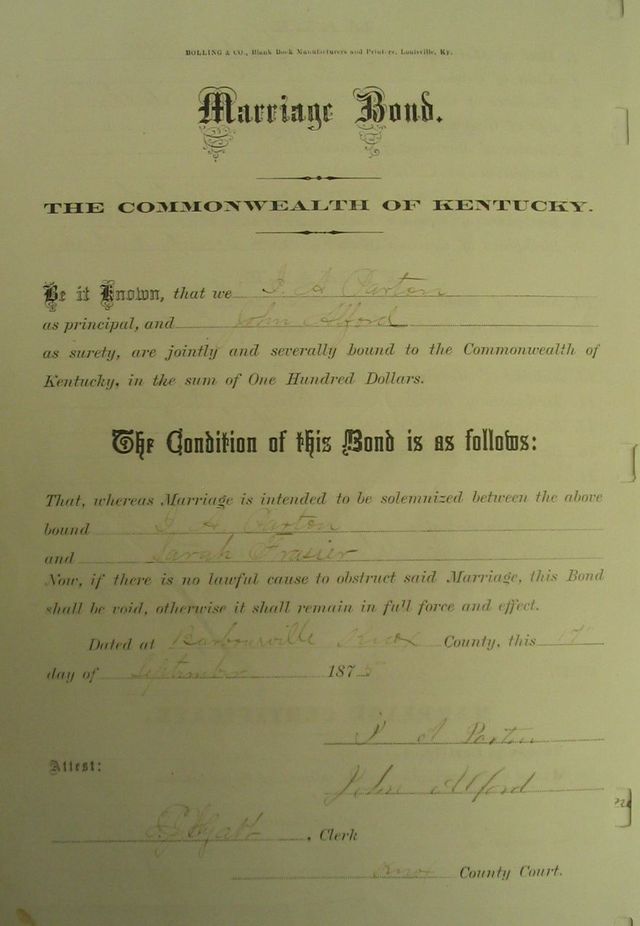 BOLLING & CO., Blank Book Manufacturers and Printers, Louisville, Ky.
Marriage Bond.
THE COMMONWEALTH OF KENTUCKY.
Be it Known, that we A Parton
as principal, and John Alford
as surety, are jointly and severally bound to the Commonwealth of
Kentucky, in the sum of One Hundred Dollars.
The Condition of this Bond is as follows:
That, whereas Marriage is intended to be solemnized between the above
bound A. Parton
and Sarah Frasier
Now, if there is no lawful cause to obstruct said Marriage, this Bond
shall be void, otherwise it shall remain in full force and effect.
Dated at Barbourville Knox County, this 17"
day of September 1875
A Parton
Attest:
John Alford
Hyatt, Clerk
Knox County Court.